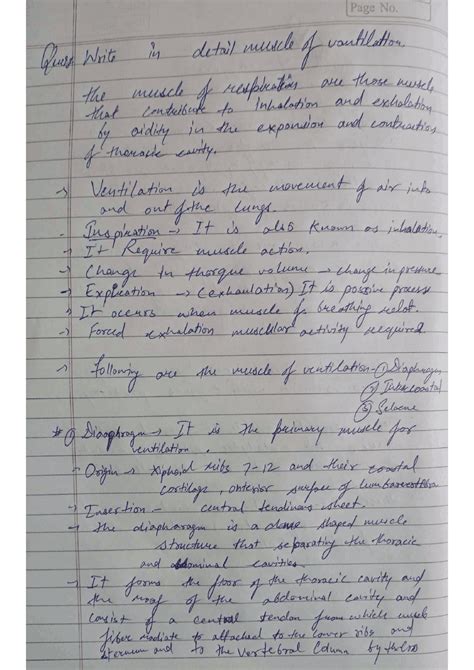 Page No.
Ques Write in detail muscle of ventilation.
the muscle of respiration are those muscle
that contribute to Inhalation and exhalation
by aidity in the expansion and contraction
of thoracic cavity.
→ Ventilation is the movement of air into
and out of the lungs.
- Inspiration → It is also known as inhalation.
- It Require muscle action.
- Change In thorque volume → change in pressure
- Expiration → (exhaulation) It is possive process
→ It occurs when muscle of breathing relat.
- Forced exhalation muscular activity required.
→ following are the muscle of ventilation - ① Diaphragm
② Intercoastal
③ Scleene
* ① Diaophragm → It is the primary muscle for
ventilation.
- Origin → Xiphoid ribs 7-12 and their coastal
cortilage, anterior surface of lumbarvertbra
→ Insertion - central tendinous sheet.
→ the diapharagm is a dome shaped muscle
structure that separating the thoracic
and abdominal cavities.
→ It forms the floor of the thoracic cavity and
the roof of the abdominal cavity and
consist of a central tendon from which muscle
fiber radiate to attached to the lower ribs and
sternum and to the Vertebral Column by